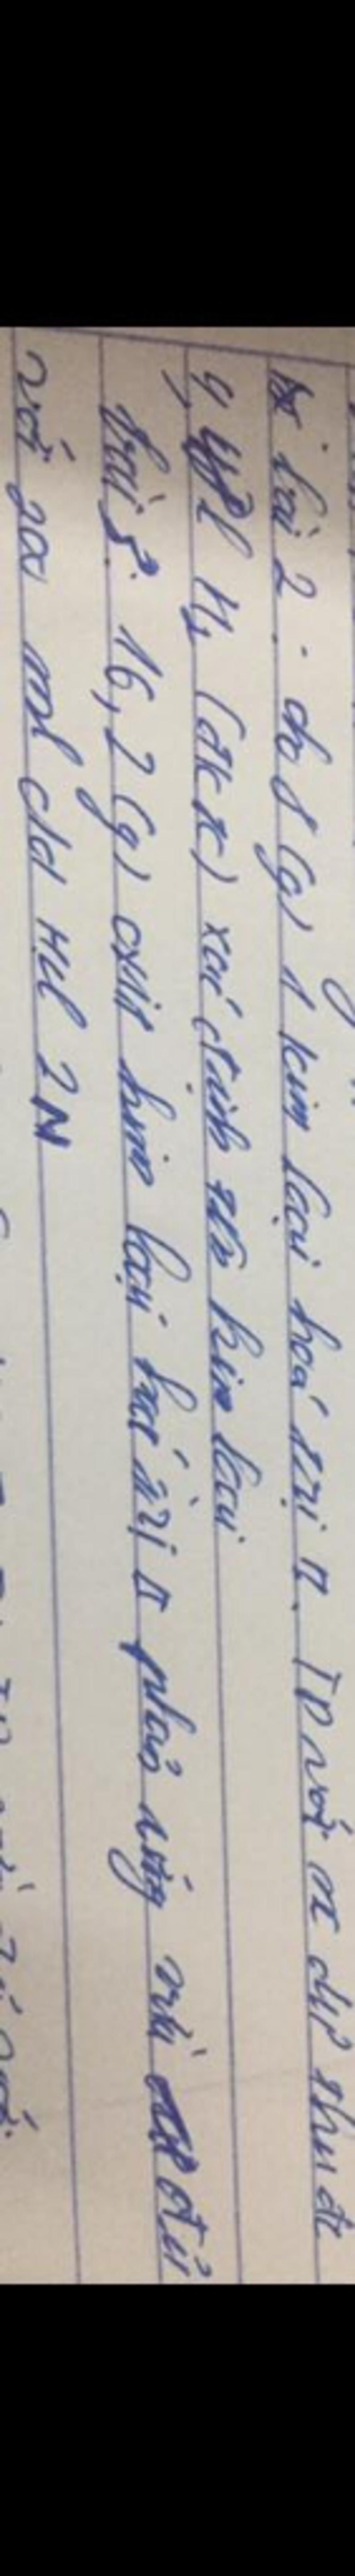 bài 2: cho 8 (g) 1 kim loại hoá trị II. TD với ax dư thu đc
4,48l H2 (đktc) xác định tên kim loại
bài 3: 16,2 (g) oxit kim loại hoá trị II phản ứng vừa đủ
với 200 ml dd HCl 2N